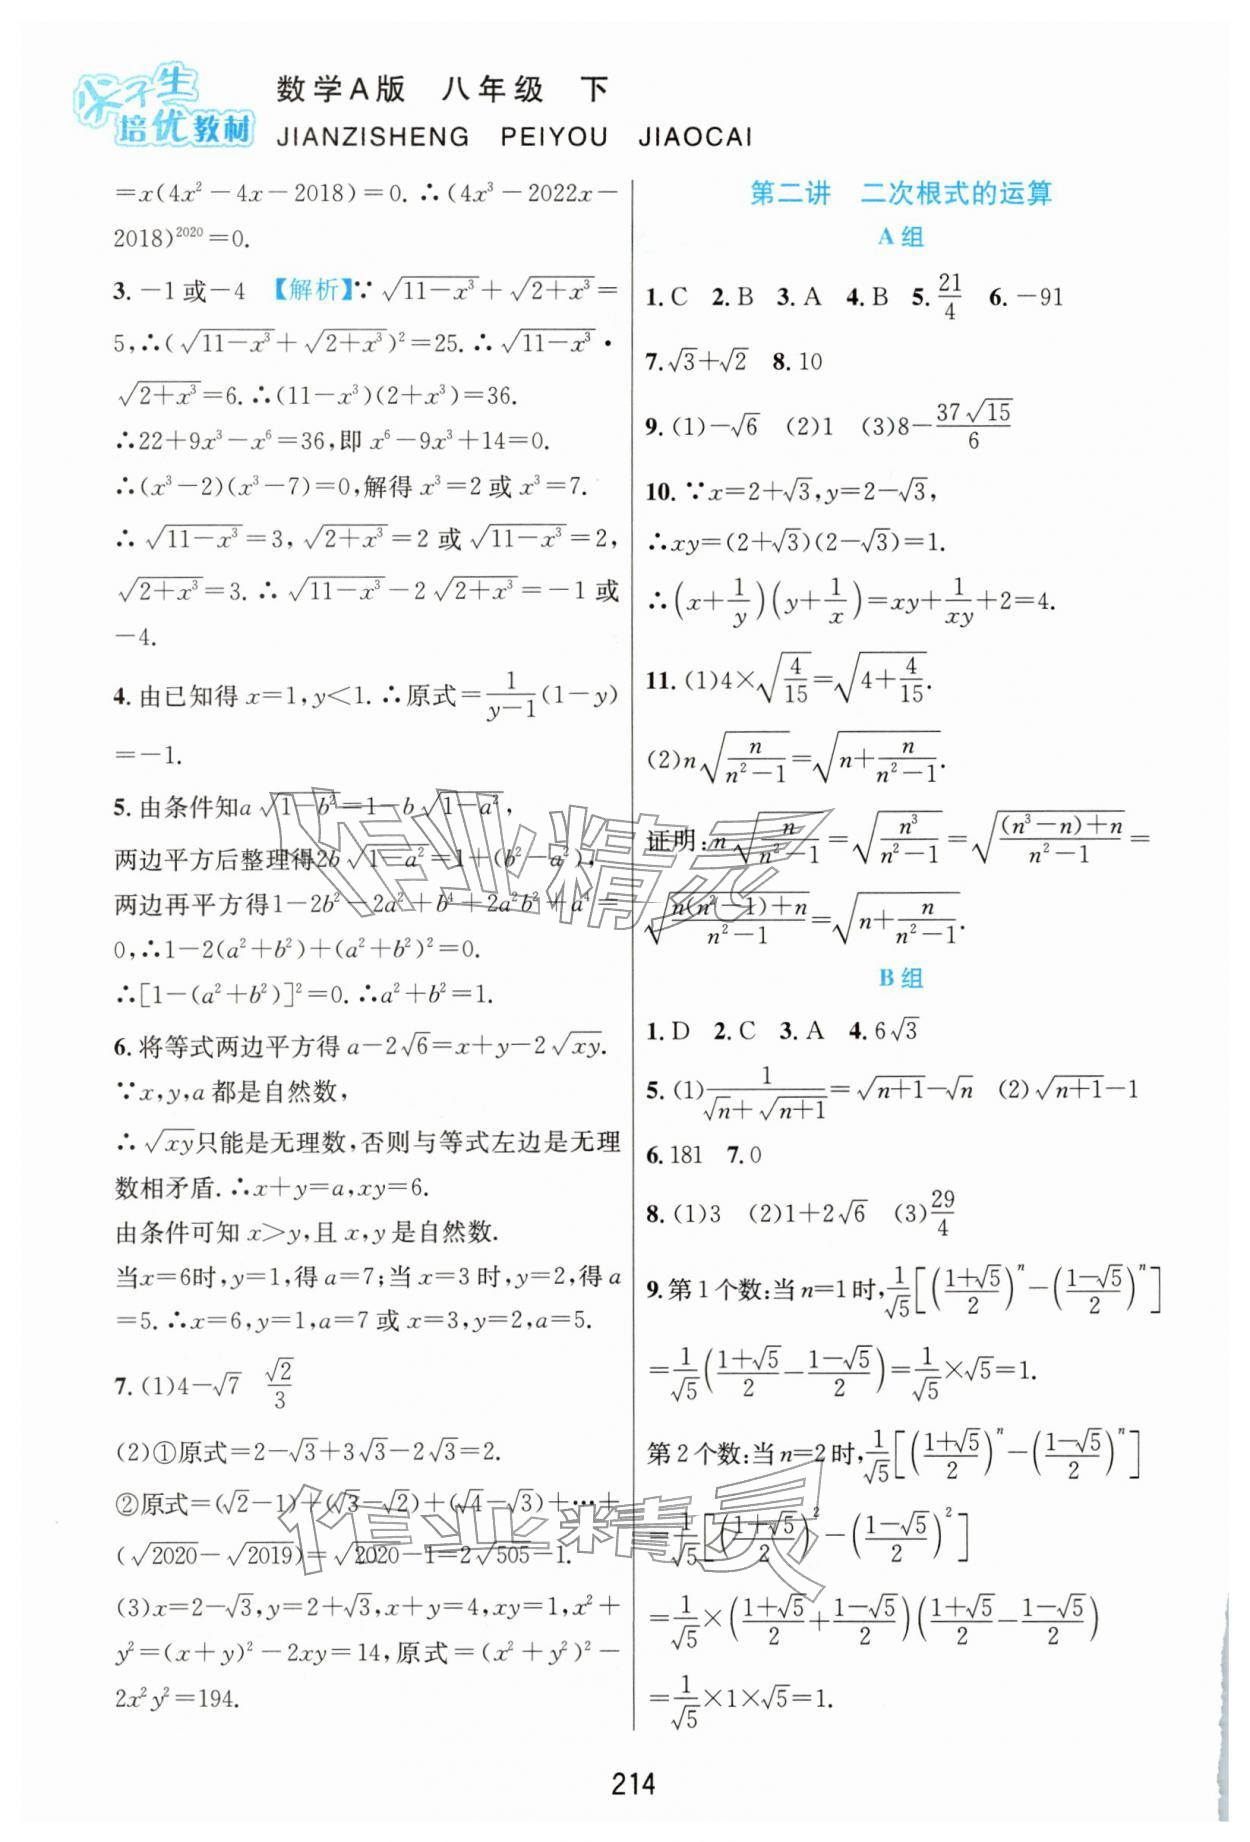 尖子生
培优教材
数学A版 八年级 下
JIANZISHENG PEIYOU JIAOCAI
=x(4x²-4x-2018)=0.∴(4x³-2022x-
2018)²⁰²⁰=0.
3.-1或-4 【解析】∵√(11-x³)+√(2+x³)=
5,∴(√(11-x³)+√(2+x³))²=25.∴√(11-x³)·
√(2+x³)=6.∴(11-x³)(2+x³)=36.
∴22+9x³-x⁶=36,即x⁶-9x³+14=0.
∴(x³-2)(x³-7)=0,解得x³=2或x³=7.
∴√(11-x³)=3,√(2+x³)=2或√(11-x³)=2,
√(2+x³)=3.∴√(11-x³)-2√(2+x³)=-1或
-4.
4.由已知得x=1,y<1.∴原式=1/(y-1)(1-y)
=-1.
5.由条件知a√(1-b²)=1-b√(1-a²),
两边平方后整理得2b√(1-a²)=1+(b²-a²),
两边再平方得1-2b²-2a²+b⁴+2a²b²+a⁴=
0,∴1-2(a²+b²)+(a²+b²)²=0.
∴[1-(a²+b²)]²=0.∴a²+b²=1.
6.将等式两边平方得a-2√6=x+y-2√(xy).
∵x,y,a都是自然数,
∴√(xy)只能是无理数,否则与等式左边是无理
数相矛盾.∴x+y=a,xy=6.
由条件可知x>y,且x,y是自然数.
当x=6时,y=1,得a=7;当x=3时,y=2,得a
=5.∴x=6,y=1,a=7或x=3,y=2,a=5.
7.(1)4-√7 √2/3
(2)①原式=2-√3+3√3-2√3=2.
②原式=(√2-1)+(√3-√2)+(√4-√3)+…+
(√2020-√2019)=√2020-1=2√505-1.
(3)x=2-√3,y=2+√3,x+y=4,xy=1,x²+
y²=(x+y)²-2xy=14,原式=(x²+y²)²-
2x²y²=194.
第二讲 二次根式的运算
A组
1.C 2.B 3.A 4.B 5.21/4 6.-91
7.√3+√2 8.10
9.(1)-√6 (2)1 (3)8-37√15/6
10.∵x=2+√3,y=2-√3,
∴xy=(2+√3)(2-√3)=1.
∴(x+1/y)(y+1/x)=xy+1/xy+2=4.
11.(1)4×√(4/15)=√(4+4/15).
(2)n√(n/(n²-1))=√(n+n/(n²-1)).
证明:n√(n/(n²-1))=√(n³/(n²-1))=√(((n³-n)+n)/(n²-1))=
√((n(n²-1)+n)/(n²-1))=√(n+n/(n²-1)).
B组
1.D 2.C 3.A 4.6√3
5.(1)1/(√n+√(n+1))=√(n+1)-√n (2)√(n+1)-1
6.181 7.0
8.(1)3 (2)1+2√6 (3)29/4
9.第1个数:当n=1时,1/√5[((1+√5)/2)ⁿ-((1-√5)/2)ⁿ]
=1/√5((1+√5)/2-(1-√5)/2)=1/√5×√5=1.
第2个数:当n=2时,1/√5[((1+√5)/2)ⁿ-((1-√5)/2)ⁿ]
=1/√5[((1+√5)/2)²-((1-√5)/2)²]
=1/√5×((1+√5)/2+(1-√5)/2)((1+√5)/2-(1-√5)/2)
=1/√5×1×√5=1.
作业精灵
作业精灵
214